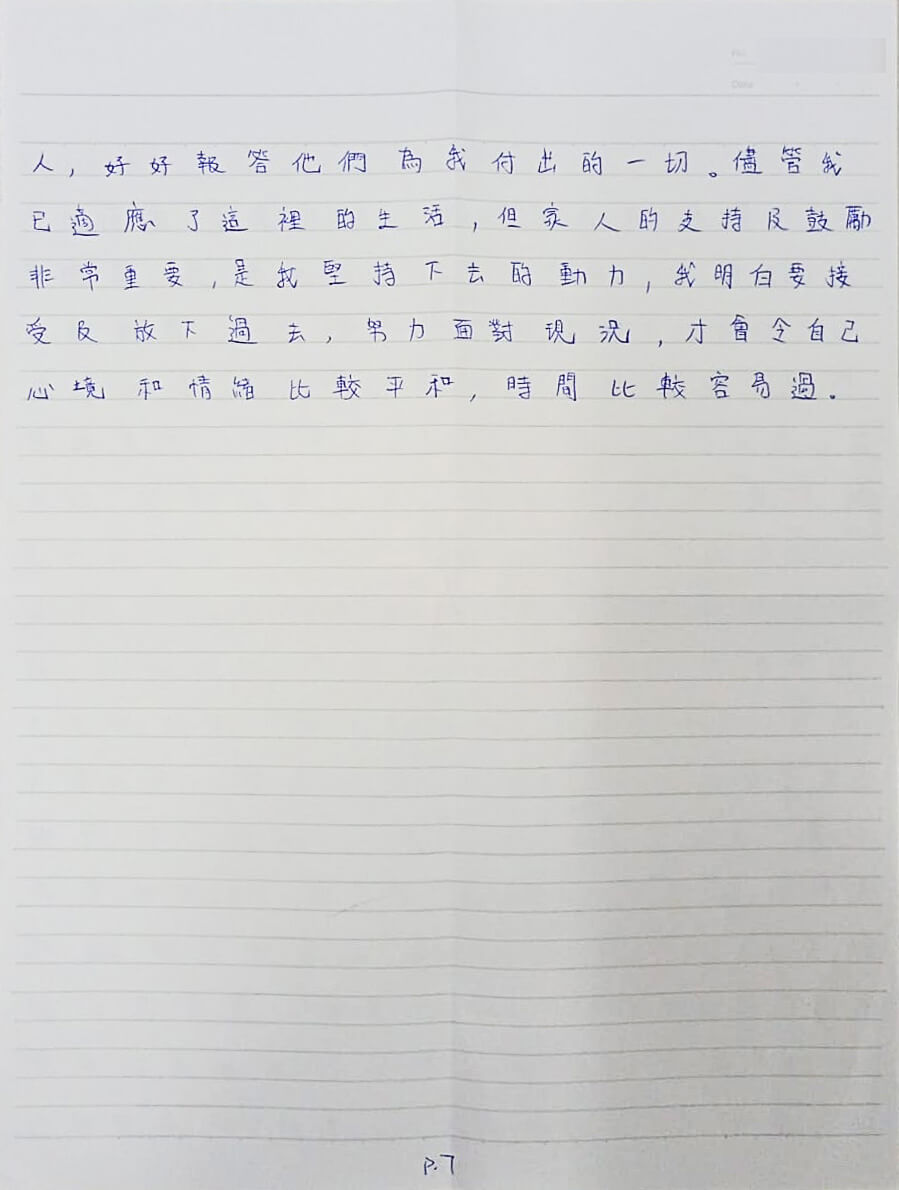 No.
Date
人，好好報答他們為我付出的一切。儘管我
已適應了這裡的生活，但家人的支持及鼓勵
非常重要，是我堅持下去的動力，我明白要接
受及放下過去，努力面對現況，才會令自己
心境和情緒比較平和，時間比較容易過。
P.7